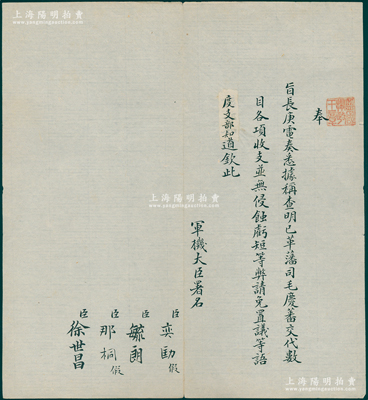 上海陽明拍賣
www.yangmingauction.com
上海陽明拍賣
www.yangmingauction.com
奉
旨長庚電奏悉據稱查明已革藩司毛慶蕃交代數
目各項收支並無侵蝕虧短等弊請免置議等語
度支部知道欽此
軍機大臣署名
臣奕劻假
臣毓朗
臣那桐假
臣徐世昌